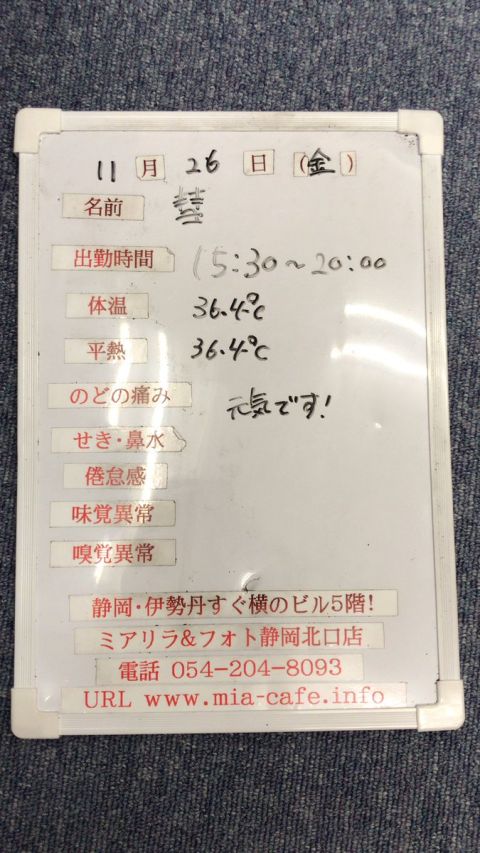 11月26日(金)
名前
出勤時間 15:30~20:00
体温 36.4℃
平熱 36.4℃
のどの痛み 元気です!
せき・鼻水
倦怠感
味覚異常
嗅覚異常
静岡・伊勢丹すぐ横のビル5階!
ミアリラ&フォト静岡北口店
電話 054-204-8093
URL www.mia-cafe.info